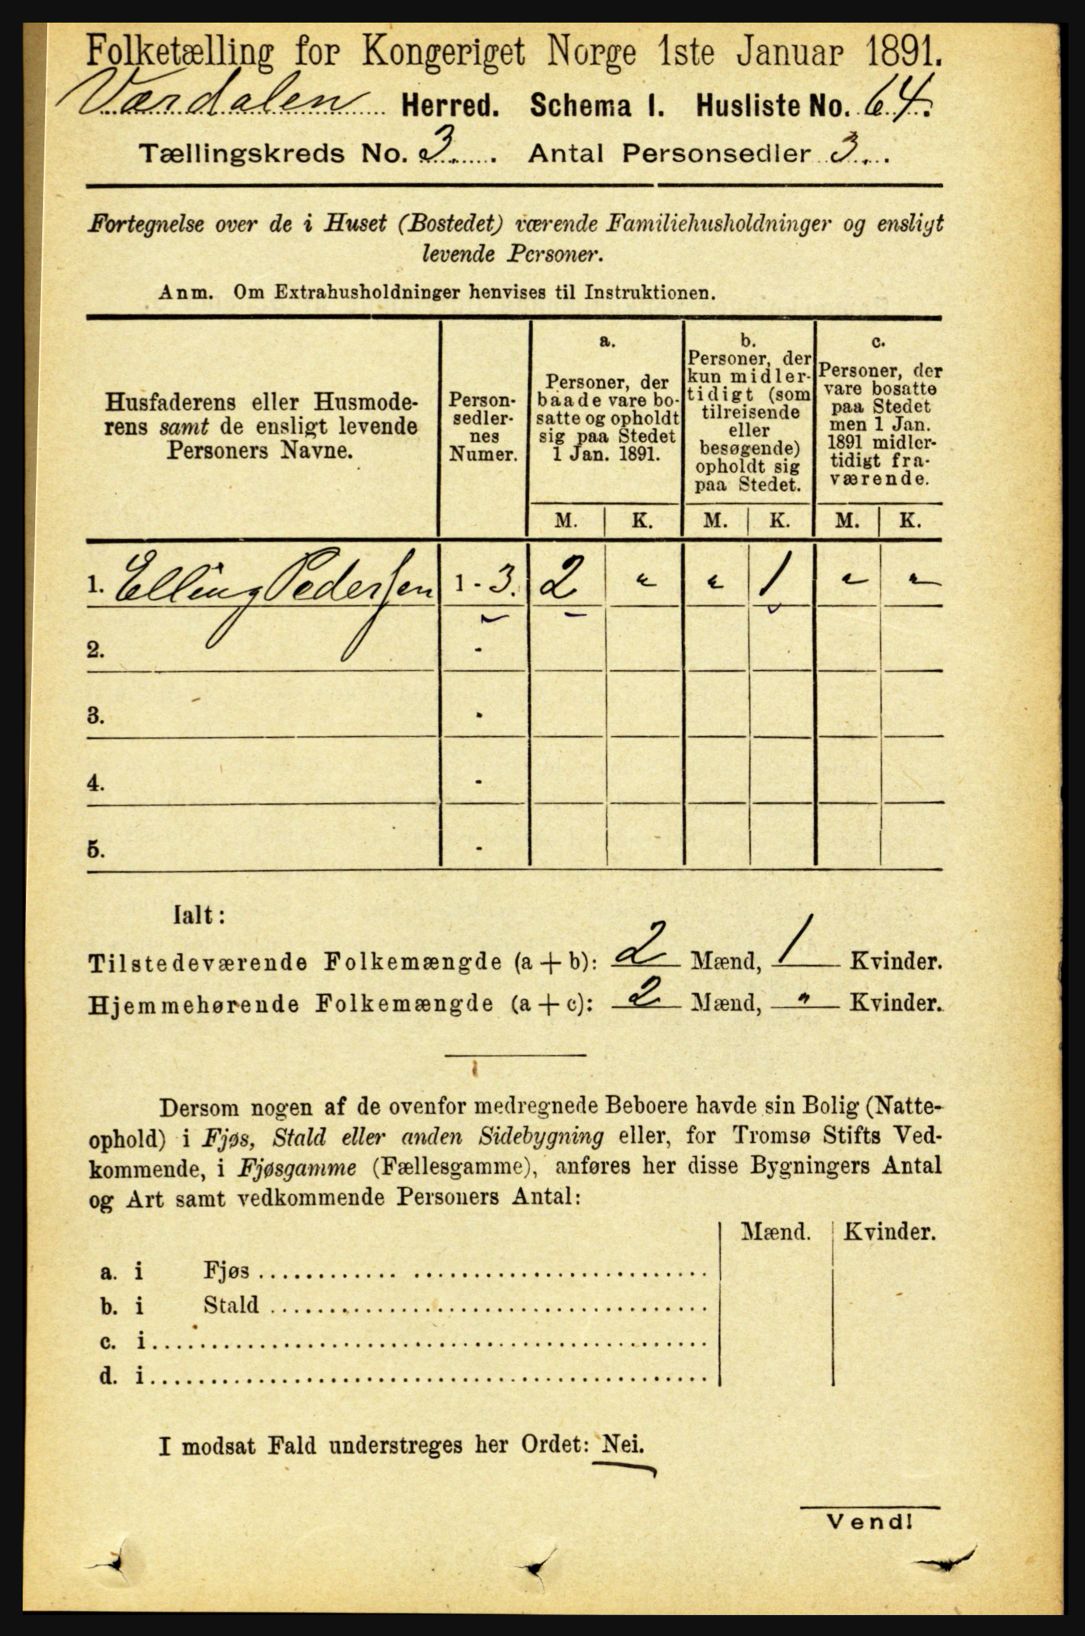 Folketælling for Kongeriget Norge 1ste Januar 1891.
Værdalen Herred. Schema I. Husliste No. 64.
Tællingskreds No. 3. Antal Personsedler 3.
Fortegnelse over de i Huset (Bostedet) værende Familiehusholdninger og ensligt
levende Personer.
Anm. Om Extrahusholdninger henvises til Instruktionen.
Husfaderens eller Husmode-
rens samt de ensligt levende
Personers Navne.
Person-
sedler-
nes
Numer.
a.
Personer, der
baade vare bo-
satte og opholdt
sig paa Stedet
1 Jan. 1891.
b.
Personer, der
kun midler-
tidigt (som
tilreisende
eller
besøgende)
opholdt sig
paa Stedet.
c.
Personer, der
vare bosatte
paa Stedet
men 1 Jan.
1891 midler-
tidigt fra-
værende.
M. K. M. K. M. K.
1. Elling Pedersen 1 - 3. 2 " " 1 " "
2. -
3. -
4. -
5. -
Ialt:
Tilstedeværende Folkemængde (a + b): 2 Mænd, 1 Kvinder.
Hjemmehørende Folkemængde (a + c): 2 Mænd, " Kvinder.
Dersom nogen af de ovenfor medregnede Beboere havde sin Bolig (Natte-
ophold) i Fjøs, Stald eller anden Sidebygning eller, for Tromsø Stifts Ved-
kommende, i Fjøsgamme (Fællesgamme), anføres her disse Bygningers Antal
og Art samt vedkommende Personers Antal:
Mænd. Kvinder.
a. i Fjøs
b. i Stald
c. i
d. i
I modsat Fald understreges her Ordet: Nei.
Vend!